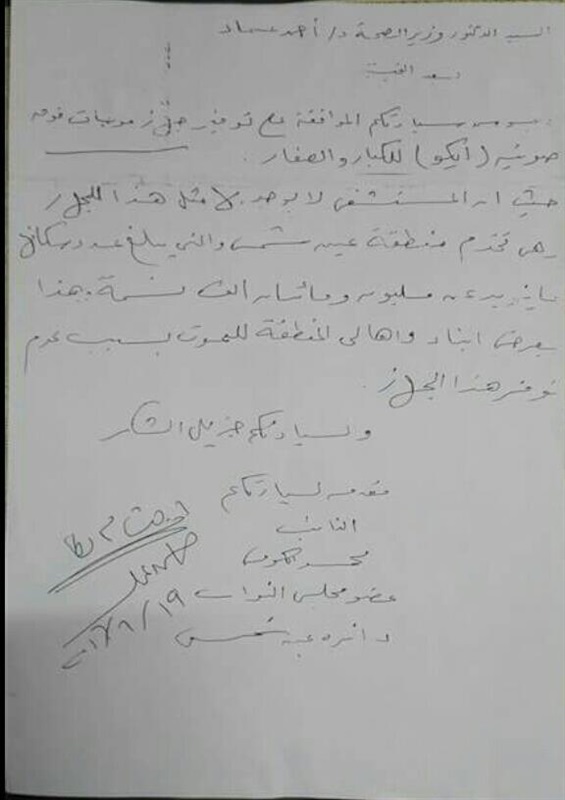 السيد الدكتور وزير الصحة د/ أحمد عماد
بعد التحية
برجاء من سيادتكم الموافقة على توفير جهاز موجات فوق
صوتية (أيكو) للكبار والصغار.
حيث ان المستشفى لا يوجد بها مثل هذا الجهاز
وهى تخدم منطقة عين شمس والتى يبلغ عدد سكانها
ما يزيد عن مليون ومائتان الف نسمة. وهذا
يعرض ابناء واهالى المنطقة للموت بسبب عدم
توفر هذا الجهاز.
ولسيادتكم جزيل الشكر
مقدمه لسيادتكم
النائب
محمد
عضو مجلس النواب
دائرة عين شمس